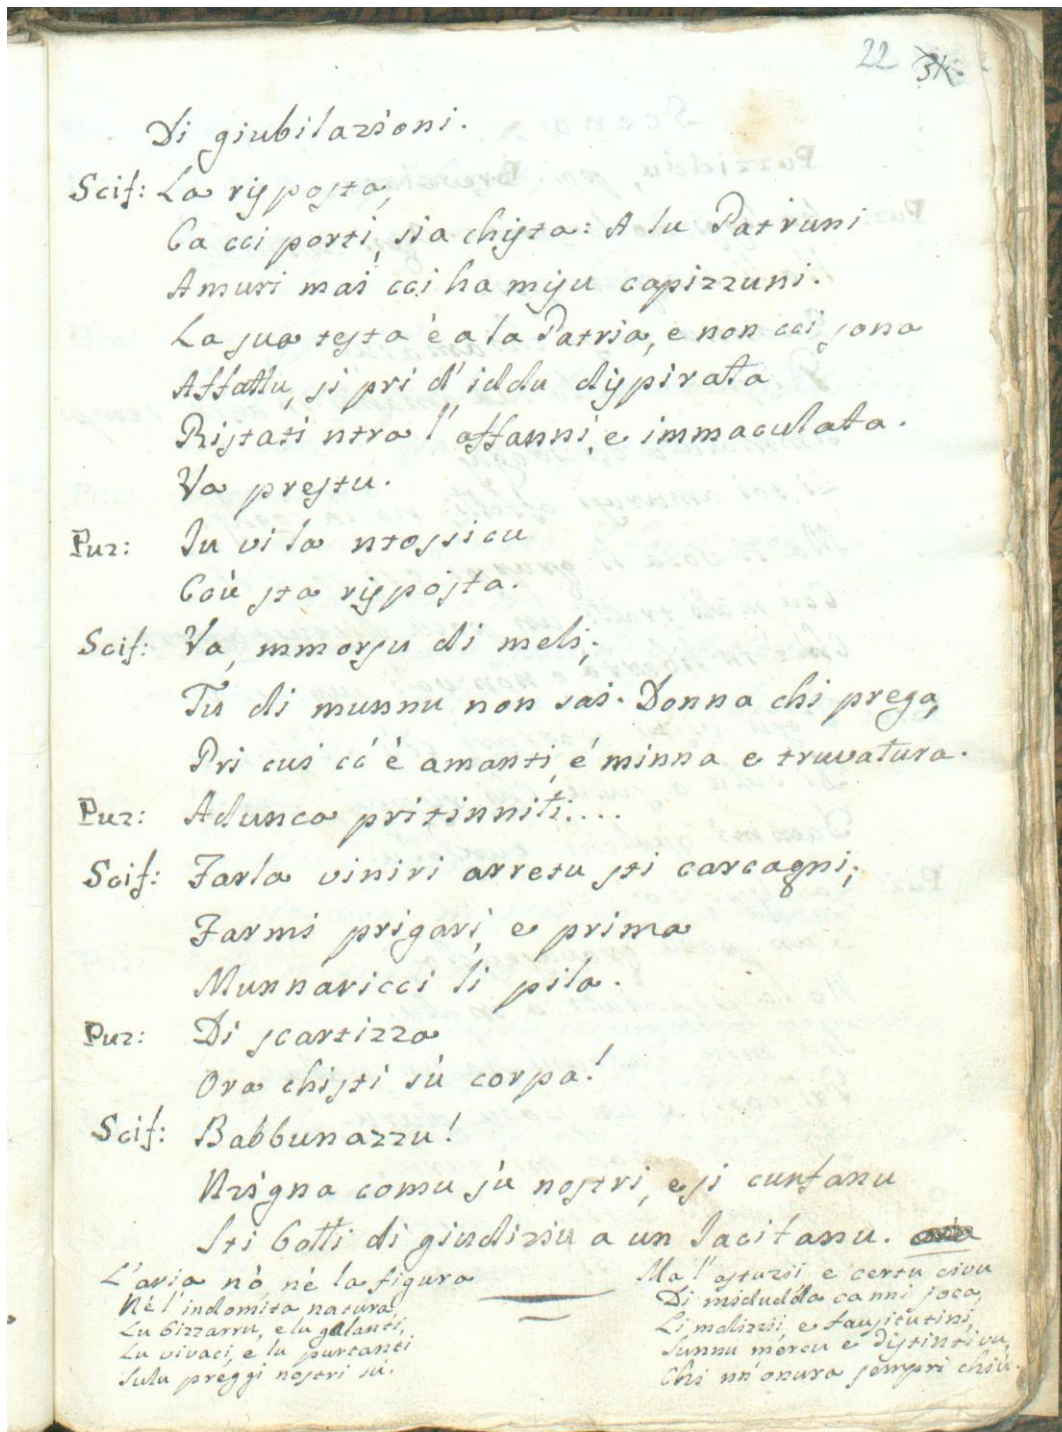 22 34.
Di giubilazioni.
Scif: La risposta,
Ca cci porti, sia chista: A lu Patruni
Amuri mai cci ha misu capizzuni.
La sua testa è a la Patria, e non cci sona
Affattu, si pri d'iddu dispirata
Ristati ntra l'affanni, e immaculata.
Va prestu.
Puz: Iu vi la ntossicu
Ccù sta risposta.
Scif: Va, mmorsu di meli;
Tu di munnu non sai. Donna chi prega,
Pri cui cc'è amanti, è minna e truvatura.
Puz: Adunca pritinniti....
Scif: Farla viniri arretu sti carcagni;
Farmi prigari, e prima
Munnaricci li pila.
Puz: Di scartizza
Ora chisti sù corpa!
Scif: Babbunazzu!
Nzigna comu sù nostri, e si cuntanu
Sti botti di giudiziu a un Iacitanu.
L'aria nò, nè la figura
Nè l'indomita natura,
Lu bizzarru, e lu galanti,
Lu vivaci, e lu purtanti
Sulu preggi nostri sù.
Ma l'astuzii e certu civu
Di midudda ca nni joca,
Li malizzii, e fausitutini,
Sunnu mercu e distintivu,
Chi nn'onura sempri chiù.